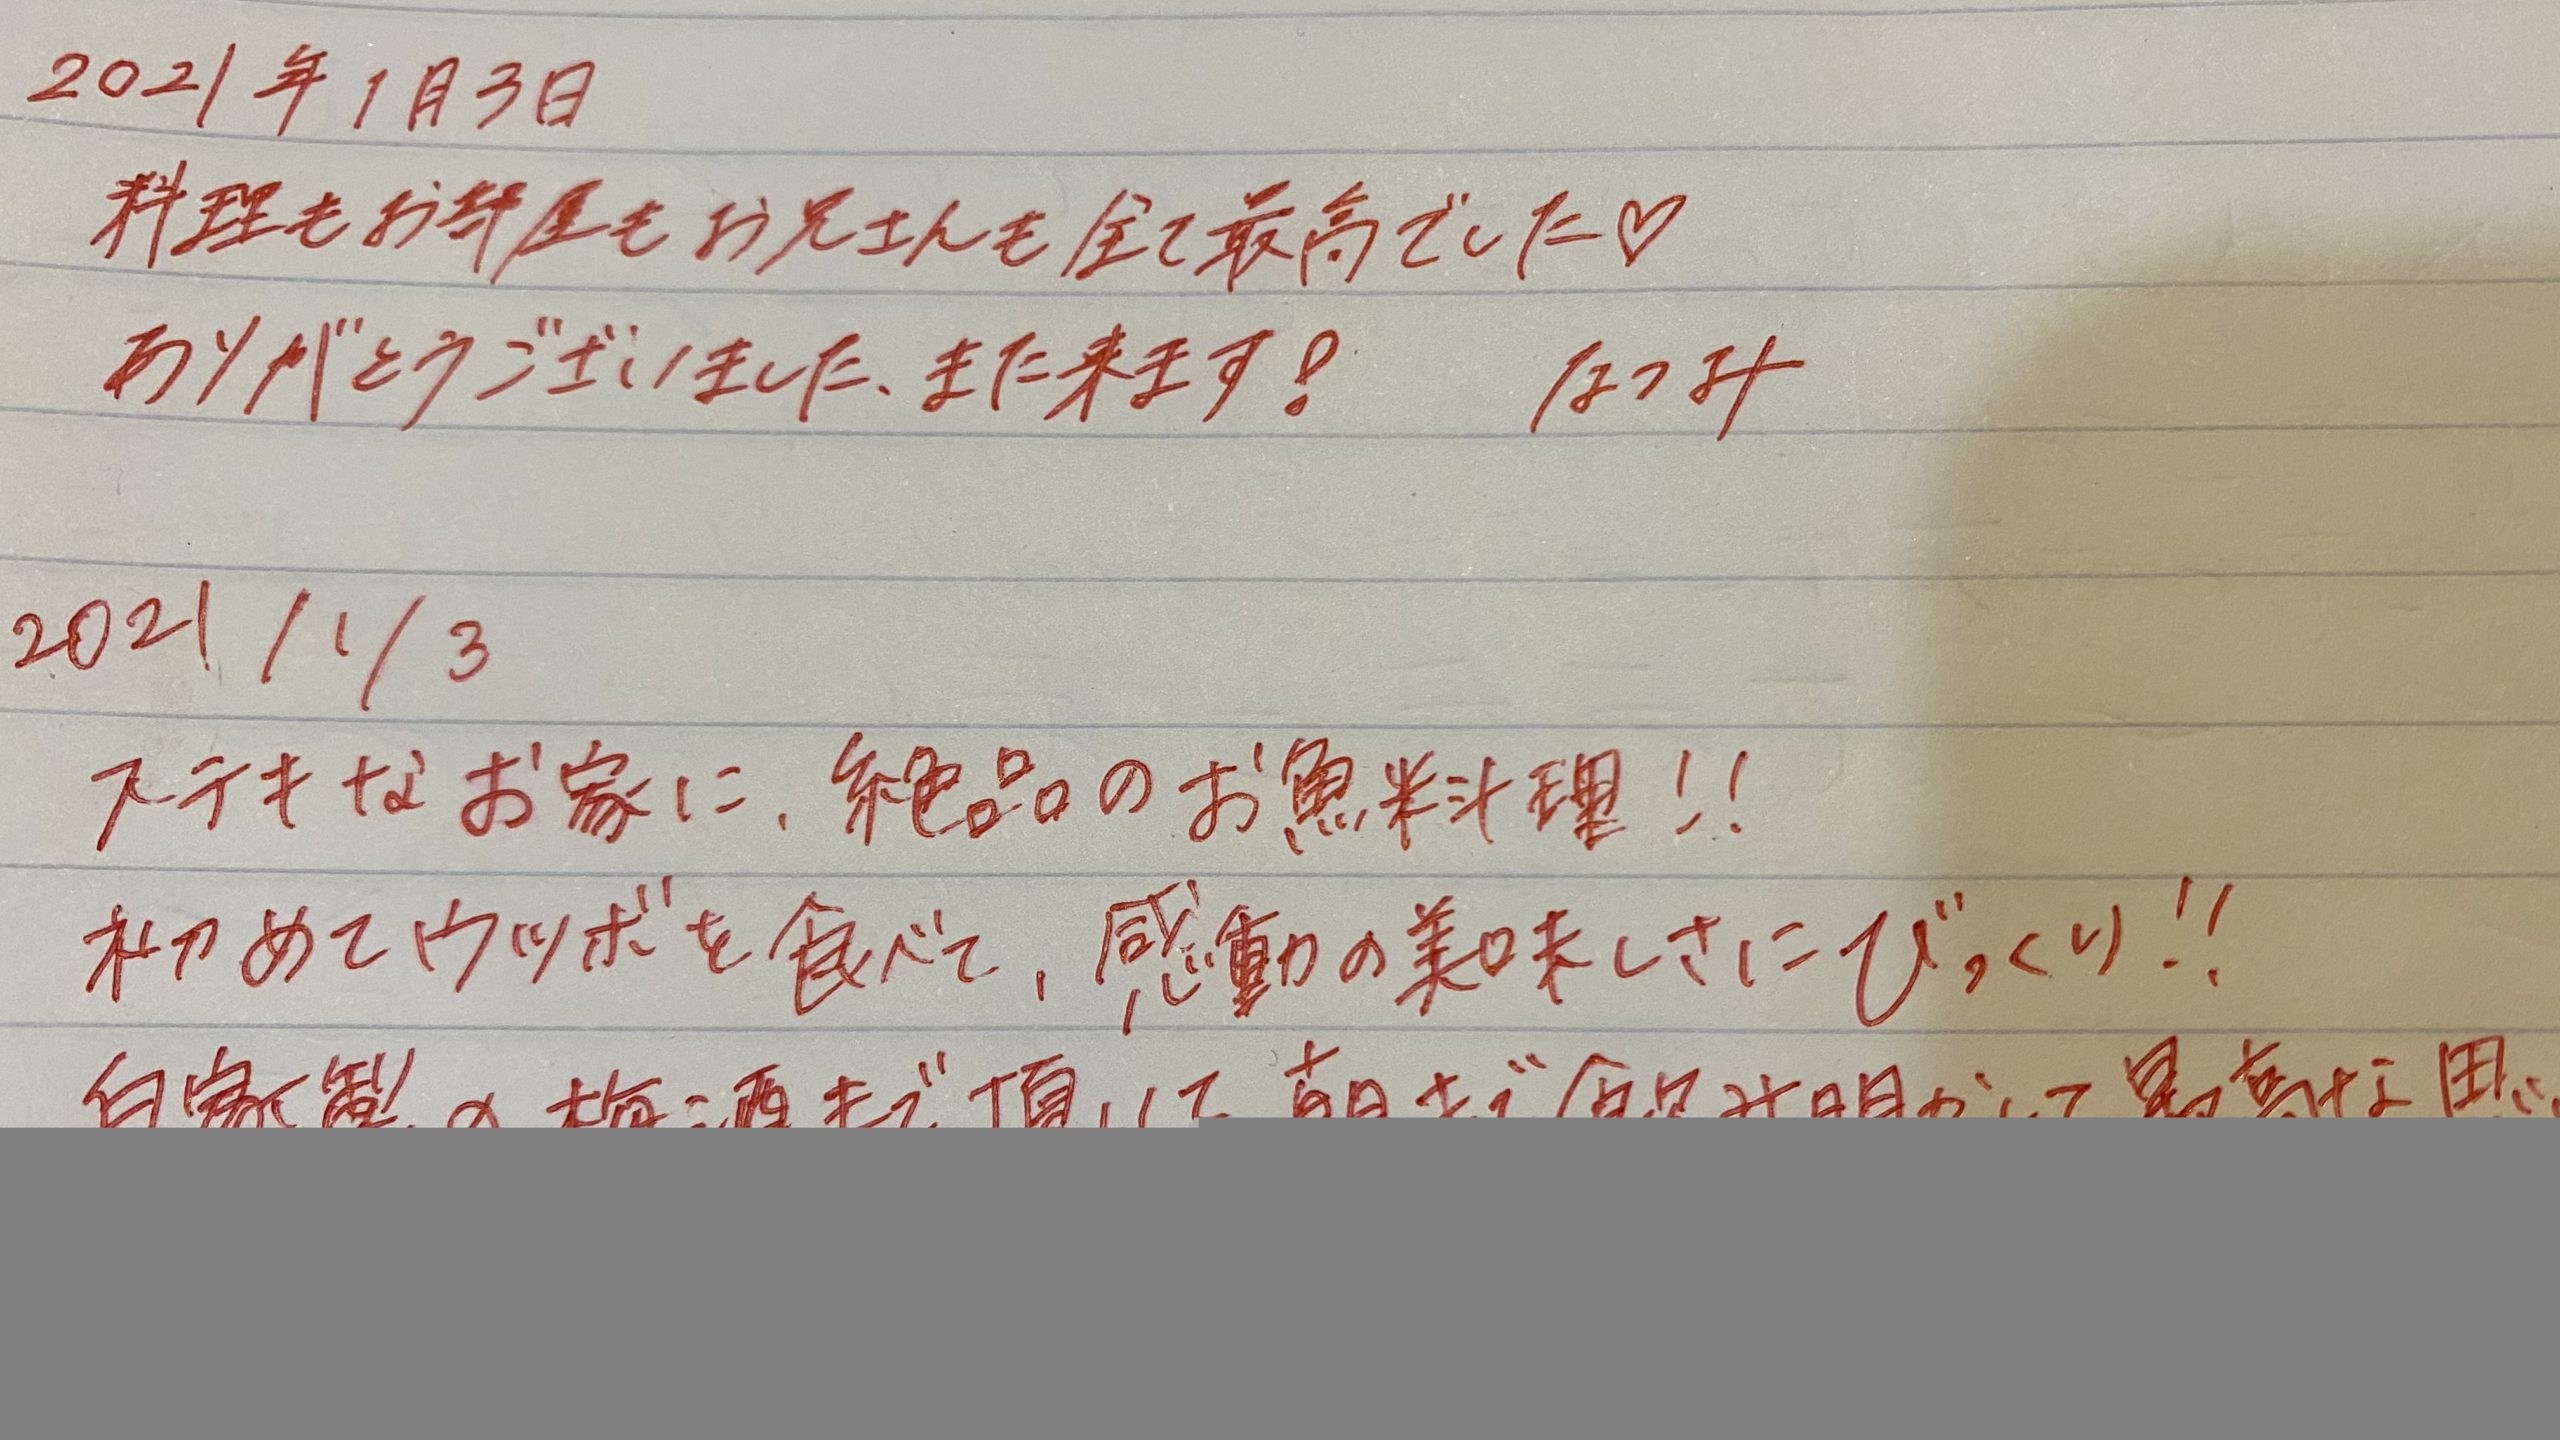 2021年1月3日
料理もお部屋もお兄さんも全て最高でした♡
ありがとうございました、また来ます! なつみ
2021/1/3
ステキなお家に、絶品のお魚料理!!
初めてウツボを食べて、感動の美味しさにびっくり!!
自家製の梅酒まで頂いて朝まで飲み明かして最高な思